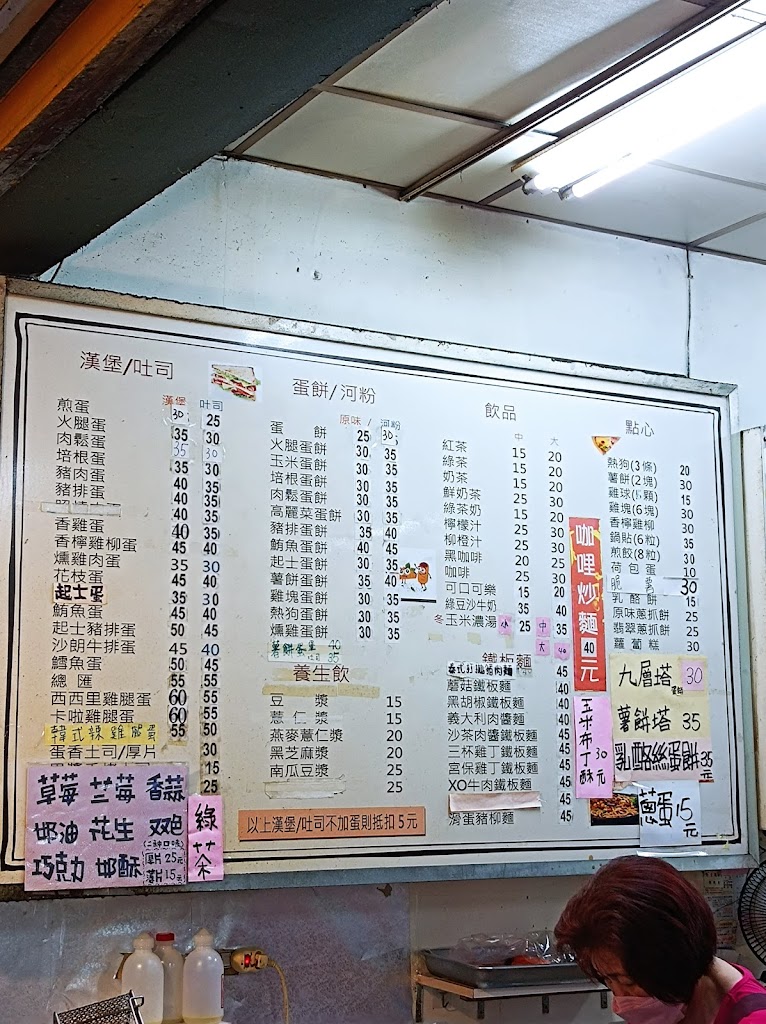 漢堡/吐司
漢堡 吐司
煎蛋 30 25
火腿蛋 35 30
肉鬆蛋 35 30
培根蛋 35 30
豬肉蛋 40 35
豬排蛋 40 35
香雞蛋 45 40
香檸雞柳蛋 45 40
燻雞肉蛋 35 30
花枝蛋 45 40
起士蛋 35 30
鮪魚蛋 45 40
起士豬排蛋 50 45
沙朗牛排蛋 45 40
鱈魚蛋 50 45
總匯 55 50
西西里雞腿蛋 60 55
卡啦雞腿蛋 60 55
韓式辣雞腿蛋 55 50
蛋香土司/厚片 30
草莓 蘭莓 香蒜
奶油 花生 双色
(二種口味)
巧克力 奶酥
厚片25元
薄片15元
綠茶
蛋餅/河粉
原味 / 河粉
蛋餅 25 30
火腿蛋餅 30 35
玉米蛋餅 30 35
培根蛋餅 30 35
肉鬆蛋餅 30 35
高麗菜蛋餅 30 35
豬排蛋餅 35 40
鮪魚蛋餅 40 45
起士蛋餅 30 35
薯餅蛋餅 35 40
雞塊蛋餅 30 35
熱狗蛋餅 30 35
燻雞蛋餅 30 35
養生飲
豆漿 15
薏仁漿 15
燕麥薏仁漿 20
黑芝麻漿 20
南瓜豆漿 25
25
以上漢堡/吐司不加蛋則抵扣5元
飲品
中 大
紅茶 15 20
綠茶 15 20
奶茶 20 25
鮮奶茶 25 30
綠茶奶 20 25
檸檬汁 25 30
柳橙汁 25 30
黑咖啡 20 25
咖啡 25 30
可口可樂 15 20
綠豆沙牛奶 35 40
冬玉米濃湯 小25 中35
大 40
鐵板麵
45
蘑菇鐵板麵 40
黑胡椒鐵板麵 40
義大利肉醬麵 40
沙茶肉醬鐵板麵 45
三杯雞丁鐵板麵 45
宮保雞丁鐵板麵 45
XO牛肉鐵板麵 45
滑蛋豬柳麵 45
咖哩炒麵40元
玉米布丁酥30元
點心
熱狗(3條) 20
薯餅(2塊) 30
雞球(15顆) 15
雞塊(6塊) 30
香檸雞柳 30
鍋貼(6粒) 35
煎餃(8粒) 30
荷包蛋 10
30
乳酪餅 15
原味蔥抓餅 25
翡翠蔥抓餅 25
蘿蔔糕 30
九層塔蛋餅 30
薯餅塔 35
乳酪絲蛋餅 35元
蔥蛋15元